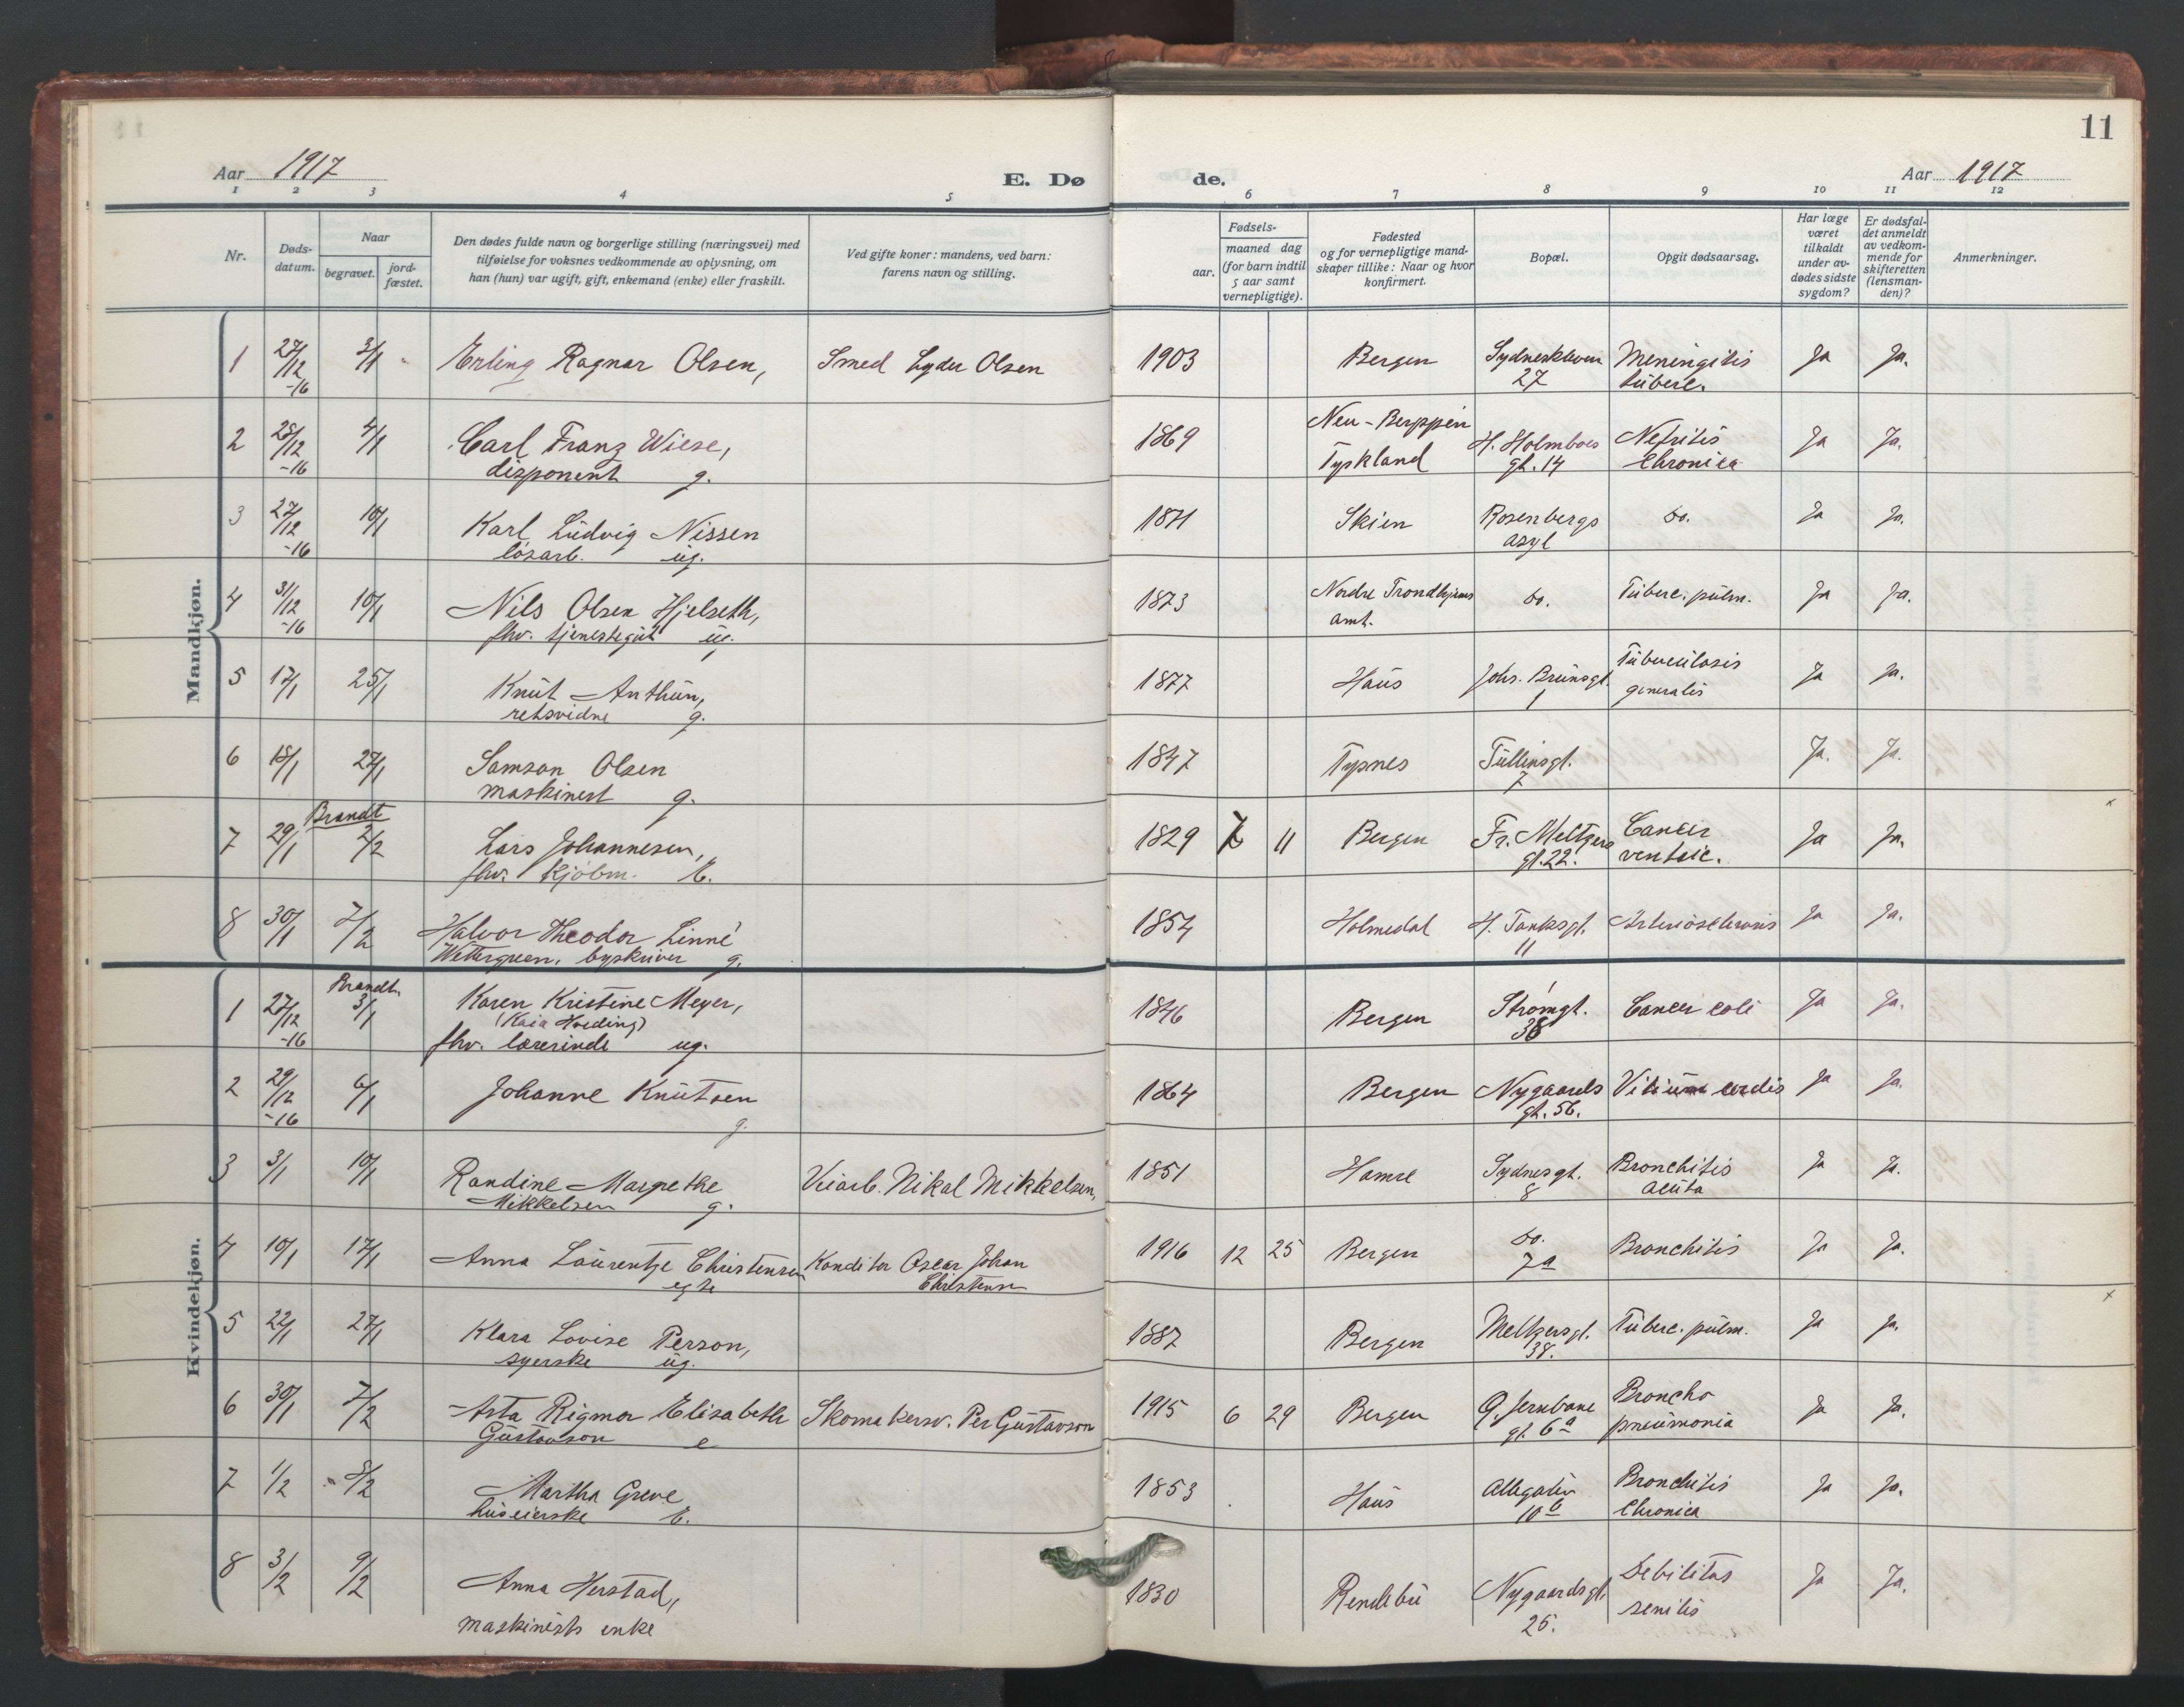 11
Aar 1917
E. Dø
de.
Aar 1917
1 2 3 4 5 6 7 8 9 10 11 12
Nr.
Døds-
datum.
Naar
begravet.
jord-
fæstet.
Den dødes fulde navn og borgerlige stilling (næringsvei) med
tilføielse for voksnes vedkommende av oplysning, om
han (hun) var ugift, gift, enkemand (enke) eller fraskilt.
Ved gifte koner: mandens, ved barn:
farens navn og stilling.
Fødsels-
aar.
maaned dag
(for barn indtil
5 aar samt
vernepligtige).
Fødested
og for vernepligtige mand-
skaper tillike: Naar og hvor
konfirmert.
Bopæl.
Opgit dødsaarsag.
Har læge
været
tilkaldt
under av-
dødes sidste
sygdom?
Er dødsfal-
det anmeldt
av vedkom-
mende for
skifteretten
(lensman-
den)?
Anmerkninger.
Mandkjøn.
1 27/12 -16 3/1 Erling Ragnar Olsen, Smed Lyder Olsen 1903 Bergen Sydneskleven 27 Meningitis tuberc. Ja Ja.
2 28/12 -16 4/1 Carl Franz Wiese, 1869 H. Holmboes Nefritis Ja Ja.
disponent g. Tyskland gt. 14 Chronica
3 27/12 -16 10/1 Karl Ludvig Nissen 1871 Skien Rosenbergs do. Ja Ja.
løsarb. ug. asyl
4 31/12 -16 10/1 Nils Olsen Hjelseth, 1873 Nordre Trondhjems do. Tuberc. pulm. Ja Ja.
fhv. tjenestegut ug. amt.
5 17/1 25/1 Knut Anthun, 1877 Haus Johs. Brunsgt. Tuberculosis Ja Ja.
retsvidne g. 1 generalis
6 18/1 27/1 Samson Olsen 1847 Tysnes Tullinsgt. Ja. Ja.
maskinest g. 7
Brandt
7 29/1 2/2 Lars Johannesen, 1829 7 11 Bergen Fr. Meltzers Cancer Ja Ja.
fhv. kjøbm. E. gt. 22. ventric.
8 30/1 7/2 Halvor Theodor Linné 1854 Holmedal H. Tanksgt. Arteriosclerosis Ja Ja.
Wettergreen, byskriver g. 11
Kvindekjøn.
Brandt.
1 27/12 -16 3/1 Karen Kristine Meyer, 1846 Bergen Strømgt. Cancer coli Ja Ja.
(Kaia Hveding) 38
fhv. lærerinde ug.
2 29/12 -16 6/1 Johanne Knutsen 1864 Bergen Nygaards Vitium cordis Ja Ja.
g. gt. 56.
3 3/1 10/1 Randine Margrethe Veiarb. Nikal Mikkelsen, 1851 Hamre Sydnesgt. Bronchitis Ja Ja.
Mikkelsen g. 8 acuta
4 10/1 17/1 Anna Laurentze Christensen Konditor Oscar Johan 1916 12 25 Bergen do. Bronchitis Ja Ja.
egte Christensen 7a
5 22/1 27/1 Klara Lovise Person, 1887 Bergen Meltzersgt. Tuberc. pulm. Ja Ja.
syerske ug. 38.
6 30/1 7/2 Asta Rigmor Elisabeth Skomakersv. Per Gustavson 1915 6 29 Bergen G. Jernbane Broncho Ja Ja.
Gustavson e gt. 6a pneumonia
7 1/2 8/2 Martha Greve 1853 Haus Allegaten Bronchitis Ja Ja.
huseierske E. 10b Chronica
8 3/2 9/2 Anna Herstad, 1830 Nygaardsgt. Debilitas Ja Ja.
maskinists enke 25. senilis